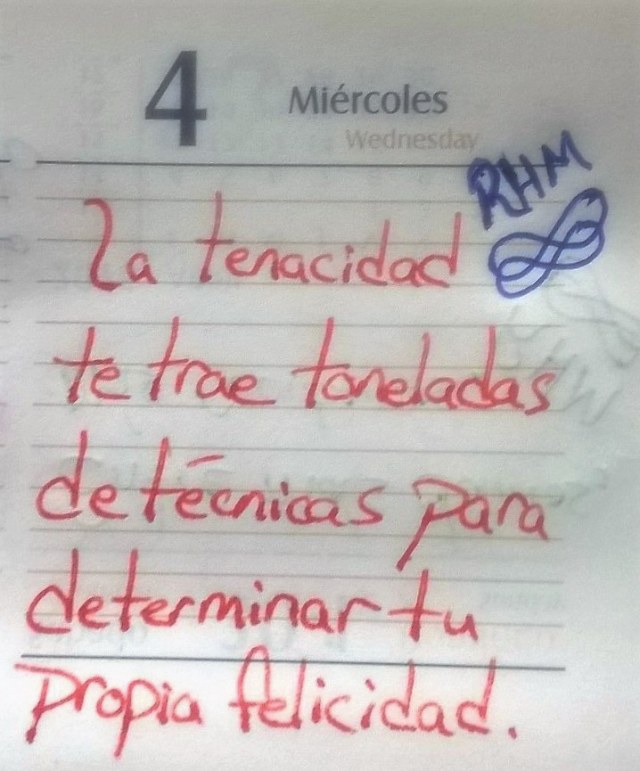 4 Miércoles
Wednesday
RHM
La tenacidad
te trae toneladas
de técnicas para
determinar tu
propia felicidad.